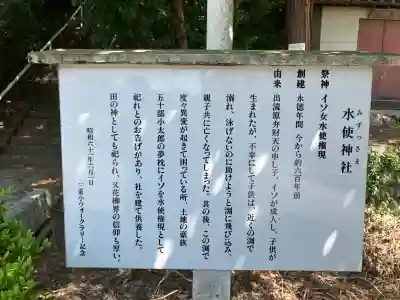 みずつさえ
水使神社
祭神 イソ女水使権現
創建 永徳年間 今から約六百年前
由来 出流原弁財天の申し子、イソが成人し、子供が
生まれたが、不幸にして子供は、近くの渕で
溺れ、泳げないのに助けようと渕に飛び込み、
親子共に亡くなってしまった。其の後、この渕で
度々異変が起きて困っている所、土地の豪族
五十部小太郎の夢枕にイソを水使権現として
祀れとのお告げがあり、社を建て供養した。
田の神としても祀られ、又花柳界の信仰も厚い。
昭和六十二年六月一日
三重小ウオークラリー記念